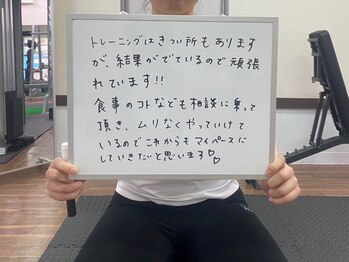 トレーニングはきつい所もあります
が、結果がでているので頑張
れています!!
食事のコトなども相談に乗って
頂き、ムリなくやっていけて
いるのでこれからもマイペースに
していきたいと思います♡♡